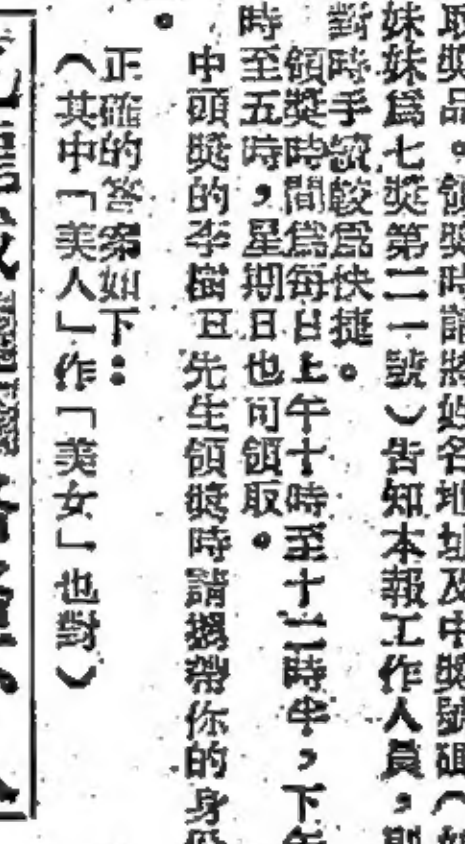 取獎品。領獎時請將姓名地址及中獎號碼（
妹妹爲七獎第二一號）告知本報工作人員，則
對時手續較爲快捷。
領獎時間爲每日上午十時至十二時半，下午
時至五時，星期日也可領取。
中頭獎的李樹丑先生領獎時請攜帶你的身
。
正確的答案如下：
（其中「美人」作「美女」也對）